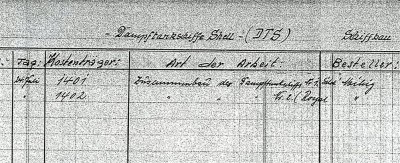 - Dampftankschiffe Shell - (DTS) Schiffbau
Tag: Kostenträger: Art der Arbeit: Besteller:
Juli 1401 Zusammenbau des Dampftankschiffs N. 1
" 1402 " " " N. 2 ( Royal "